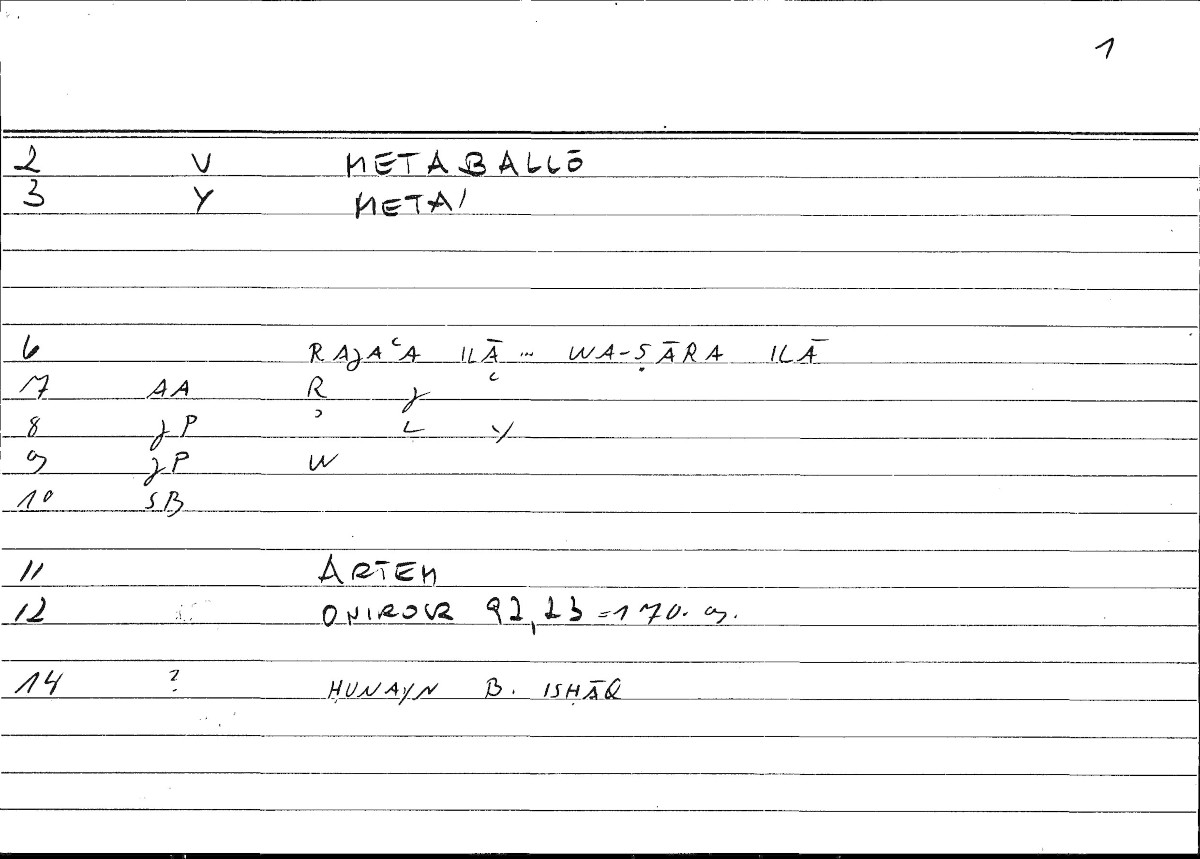 1
2 V METABALLŌ
3 Y META/
6 RAJAʿA ILĀ ... WA-ṢĀRA ILĀ
7 AA R J ʿ
8 JP ʾ L Y
9 JP W
10 SB
11 ARTEM
12 ONIROCR 92,23 =170. 9.
14 ? ḤUNAYN B. ISḤĀQ